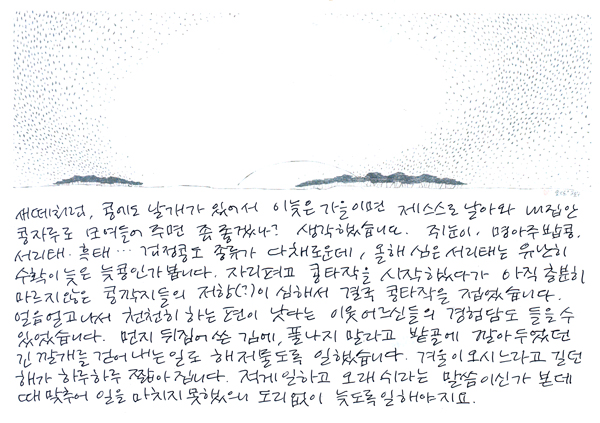 새떼처럼, 콩에도 날개가 있어서 이늦은 가을이면 제스스로 날아와 내집안
콩자루로 모여들어 주면 좀 좋겠나? 생각하였습니다. 쥐눈이, 명아주밤콩,
서리태·흑태… 검정콩도 종류가 다채로운데, 올해 심은 서리태는 유난히
수확이 늦은 늦콩인가 봅니다. 자리펴고 콩타작을 시작했다가 아직 충분히
마르지 않은 콩깍지들의 저항(?)이 심해서 결국 콩타작을 접었습니다.
얼음얼고나서 천천히 하는 편이 낫다는 이웃어르신들의 경험담도 들을수
있었습니다. 먼저 뒤집어 쓴 김에, 풀나지 말라고 밭골에 깔아두었던
긴 깔개를 걷어내는일로 해저물도록 일했습니다. 겨울이 오시느라고 길던
해가 하루하루 짧아집니다. 적게일하고 오래 쉬라는 말씀이신가 본데
때 맞추어 일을 마치지 못했으니 도리없이 늦도록 일해야지요.